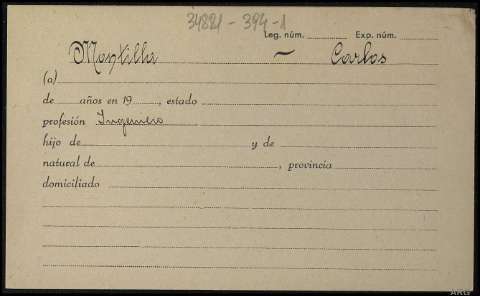 34821-394-1
Leg. núm. Exp. núm.
Montilla ~ Carlos
(a)
de años en 19 , estado
profesión Ingeniero
hijo de y de
natural de , provincia
domiciliado
ARG